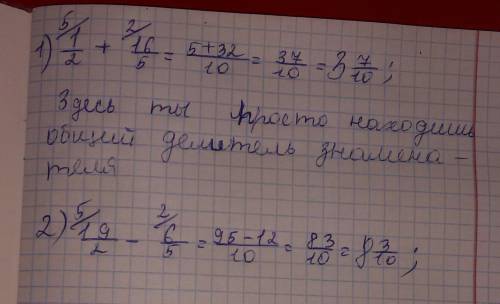 1) ⁵⁄ 1/2 + ²⁄ 16/5 = (5+32)/10 = 37/10 = 3 7/10;
Здесь ты просто находишь
общий делитель знамена-
теля
2) ⁵⁄ 19/2 - ²⁄ 6/5 = (95-12)/10 = 83/10 = 8 3/10;